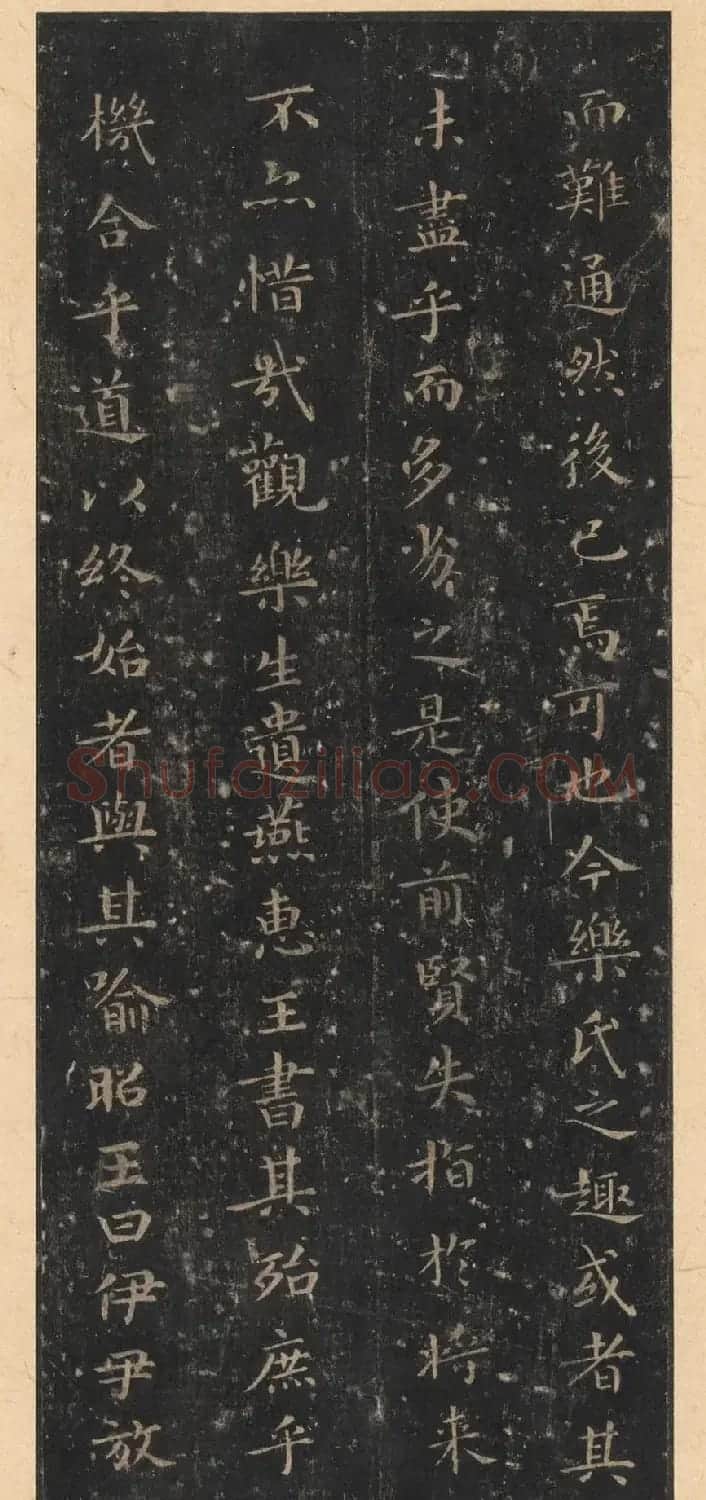 而難通然後已焉可也今樂氏之趣或者其
未盡乎而多劣之是使前賢失指於將来
不亦惜哉觀樂生遺燕惠王書其殆庶乎
機合乎道以終始者與其喻昭王曰伊尹放
Shufaziliao.COM